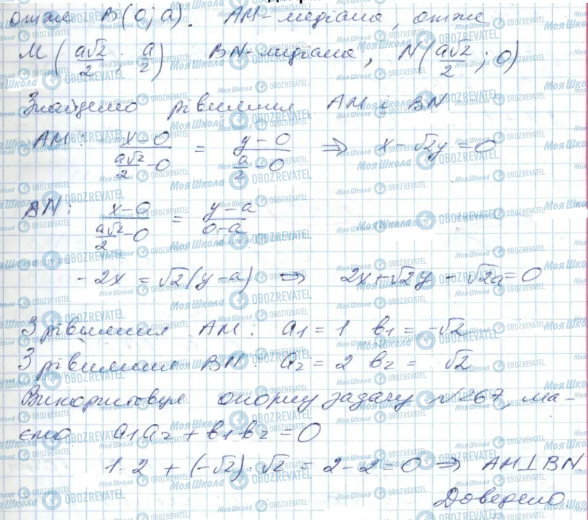 отже B(0; a). AM - медіана, отже
M(a√2/2; a/2) BN - медіана, N(a√2/2; 0)
Знайдемо рівняння AM і BN
AM: (x-0)/(a√2/2-0) = (y-0)/(a/2-0) ⇒ x-√2y=0
BN: (x-0)/(a√2/2-0) = (y-a)/(0-a)
-2x = √2(y-a) ⇒ 2x+√2y-√2a=0
З рівняння AM: a₁=1 b₁=-√2
З рівняння BN: a₂=2 b₂=√2
Використовуя опорну задачу №267, ма-
ємо a₁a₂+b₁b₂=0
1·2+(-√2)·√2=2-2=0 ⇒ AM⊥BN
Доведено